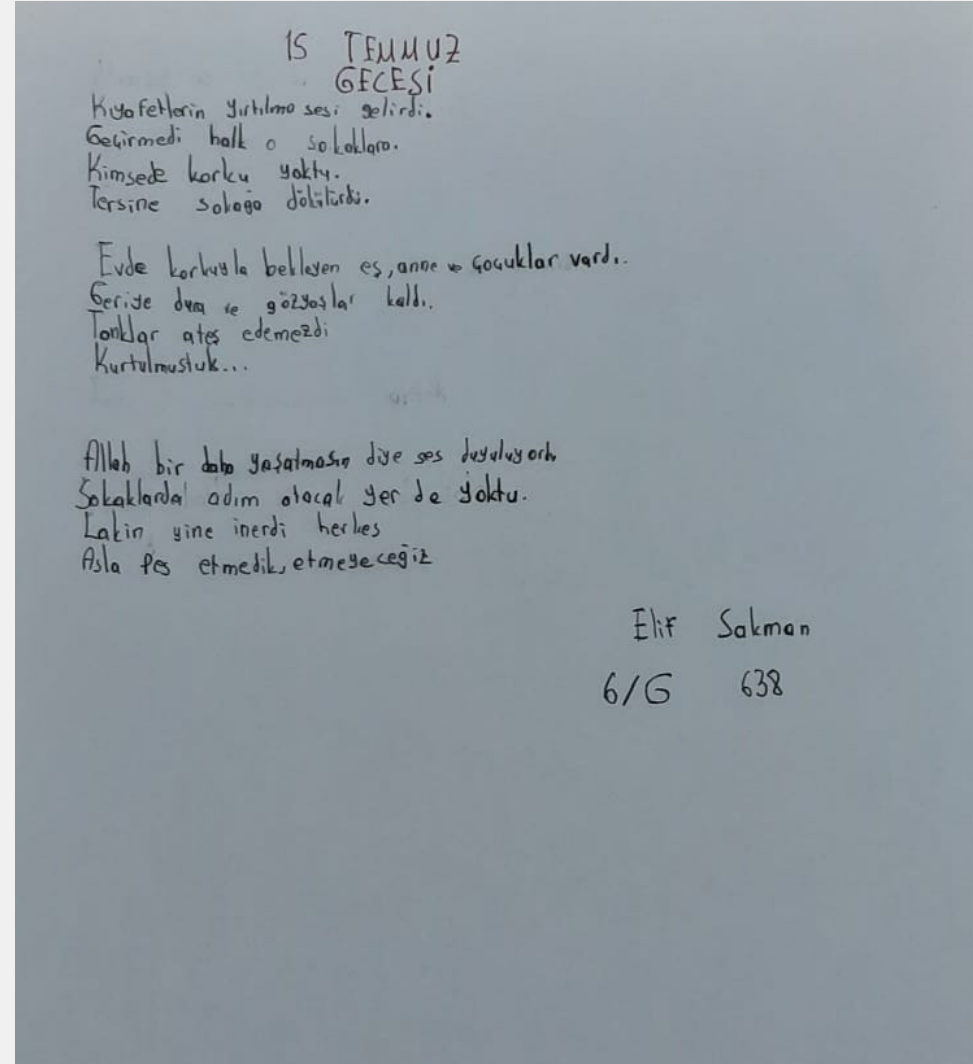 15 TEMMUZ
GECESİ
Kıyafetlerin yırtılma sesi gelirdi.
Geçirmedi halk o sokaklara.
Kimsede korku yoktu.
Tersine sokağa dökülürdü.
Evde korkuyla bekleyen eş, anne ve çocuklar vardı.
Geriye dua ve gözyaşlar kaldı.
Tanklar ateş edemezdi
Kurtulmuştuk...
Allah bir daha yaşatmasın diye ses duyuluyordu
Sokaklarda adım atacak yer de yoktu.
Lakin yine inerdi herkes
Asla Pes etmedik, etmeyeceğiz
Elif Sakman
6/G 638